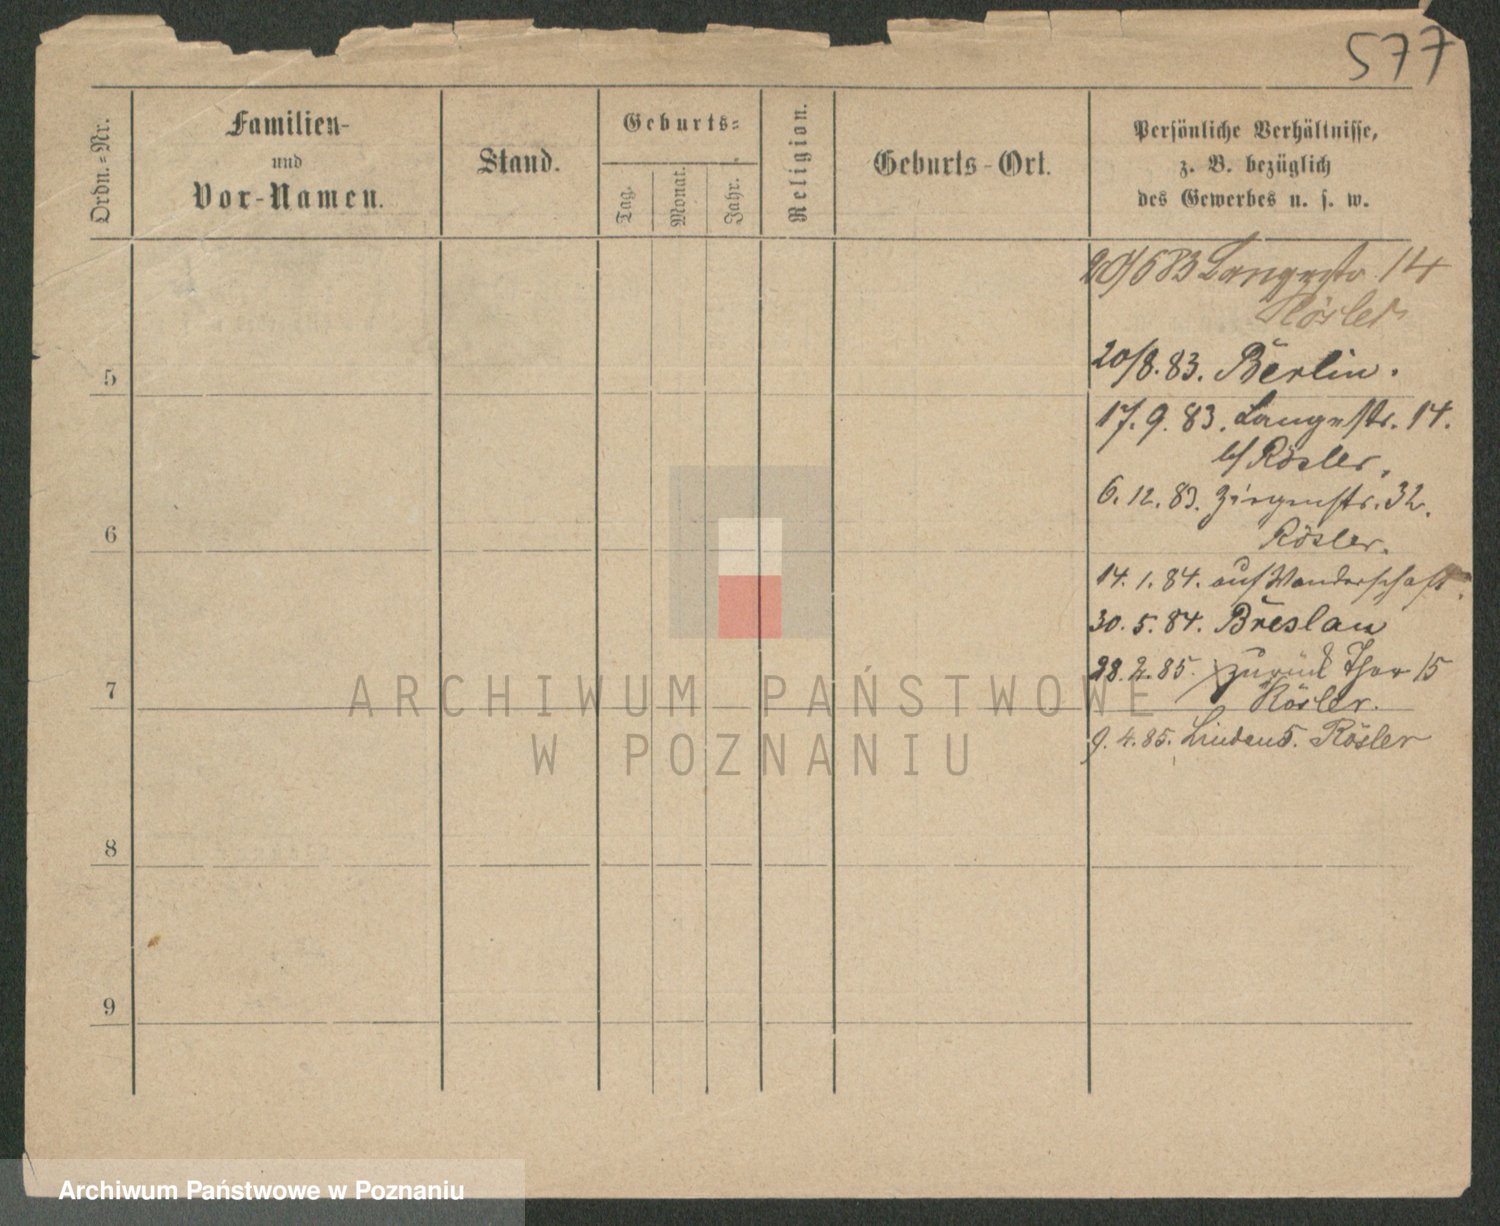 577
Ordn.-Nr.
Familien-
und
Vor-Namen.
Stand.
Geburts-
Tag.
Monat.
Jahr.
Religion.
Geburts-Ort.
Persönliche Verhältnisse,
z. B. bezüglich
des Gewerbes u. s. w.
Langestr. 14
Rösler
5
20/8.83. Berlin.
17. 9. 83. Langestr. 14.
b/ Rösler.
6
6. 12. 83. Ziegenstr. 32.
Rösler.
14. 1. 84. auf Wanderschaft.
30. 5. 84. Breslau
7
28. 2. 85. zurück Thor 15
Rösler.
9. 4. 85. Linden 5. Rösler
8
9
ARCHIWUM PAŃSTWOWE
W POZNANIU
Archiwum Państwowe w Poznaniu